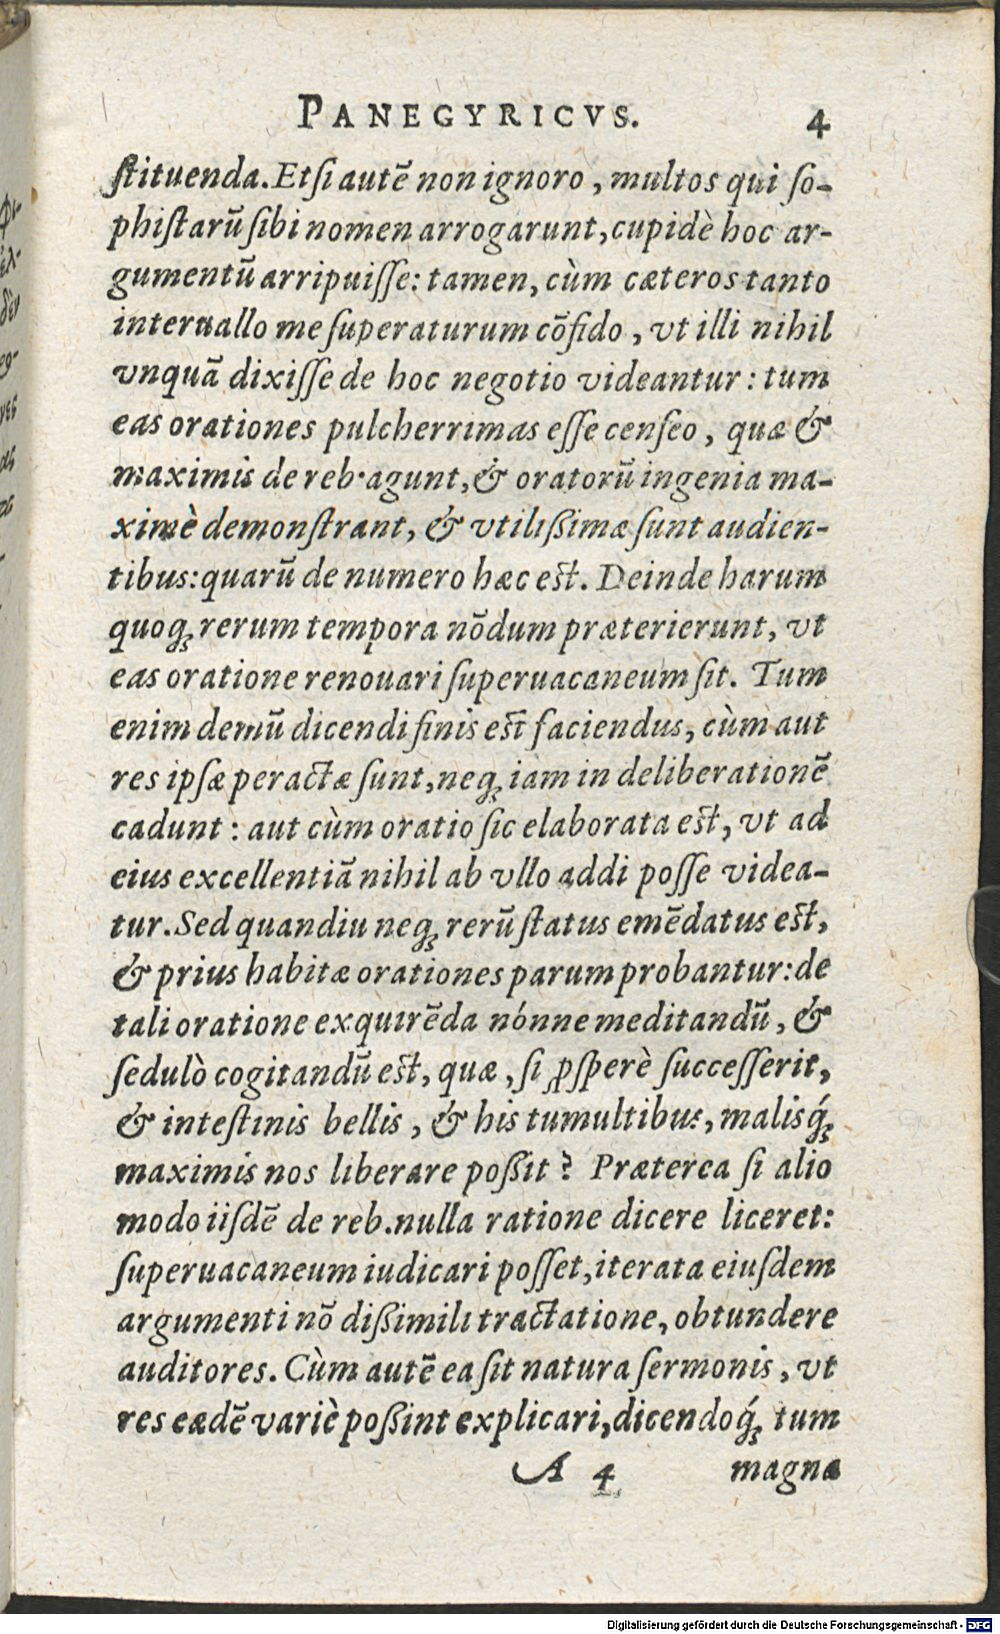 PANEGYRICVS. 4
ſtituenda. Etſi autē non ignoro, multos qui ſo-
phiſtarū ſibi nomen arrogarunt, cupidè hoc ar-
gumentū arripuiſſe: tamen, cùm cæteros tanto
interuallo me ſuperaturum cōfido, vt illi nihil
vnquā dixiſſe de hoc negotio videantur: tum
eas orationes pulcherrimas eſſe cenſeo, quæ &
maximis de reb. agunt, & oratorū ingenia ma-
ximè demonſtrant, & vtilißimæ ſunt audien-
tibus: quarū de numero hæc eſt. Deinde harum
quoq́ʒ rerum tempora nōdum præterierunt, vt
eas oratione renouari ſuperuacaneum ſit. Tum
enim demū dicendi finis eſt faciendus, cùm aut
res ipſæ peractæ ſunt, neqʒ iam in deliberationē
cadunt: aut cùm oratio ſic elaborata eſt, vt ad
eius excellentiā nihil ab vllo addi poſſe videa-
tur. Sed quandiu neqʒ rerū ſtatus emēdatus eſt,
& prius habitæ orationes parum probantur: de
tali oratione exquirēda nónne meditandū, &
ſedulò cogitandū eſt, quæ, ſi ꝓſperè ſucceſſerit,
& inteſtinis bellis, & his tumultibus, malisq́ʒ
maximis nos liberare poßit? Præterea ſi alio
modo iiſdē de reb. nulla ratione dicere liceret:
ſuperuacaneum iudicari poſſet, iterata eiuſdem
argumenti nō dißimili tractatione, obtundere
auditores. Cùm autē ea ſit natura ſermonis, vt
res eædē variè poßint explicari, dicendoq́ʒ tum
A 4 magna
Digitalisierung gefördert durch die Deutsche Forschungsgemeinschaft - DFG